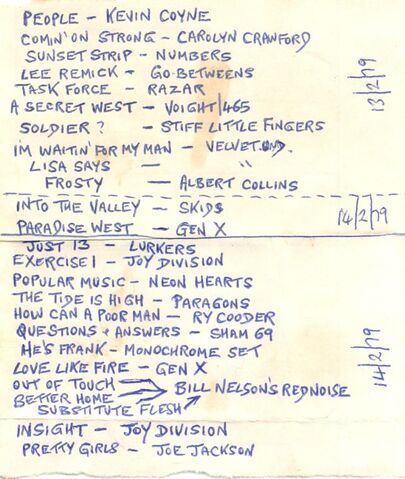 PEOPLE - KEVIN COYNE
COMIN' ON STRONG - CAROLYN CRAWFORD
SUNSET STRIP - NUMBERS
LEE REMICK - GO-BETWEENS
TASK FORCE - RAZAR
A SECRET WEST - VOIGHT/465
SOLDIER? - STIFF LITTLE FINGERS
I'M WAITIN' FOR MY MAN - VELVET UND.
LISA SAYS - "
FROSTY - ALBERT COLLINS
13/2/79
INTO THE VALLEY - SKIDS
PARADISE WEST - GEN X
14/2/79
JUST 13 - LURKERS
EXERCISE 1 - JOY DIVISION
POPULAR MUSIC - NEON HEARTS
THE TIDE IS HIGH - PARAGONS
HOW CAN A POOR MAN - RY COODER
QUESTIONS + ANSWERS - SHAM 69
HE'S FRANK - MONOCHROME SET
LOVE LIKE FIRE - GEN X
OUT OF TOUCH
BETTER HOME → BILL NELSON'S REDNOISE
SUBSTITUTE FLESH
INSIGHT - JOY DIVISION
PRETTY GIRLS - JOE JACKSON
14/2/79